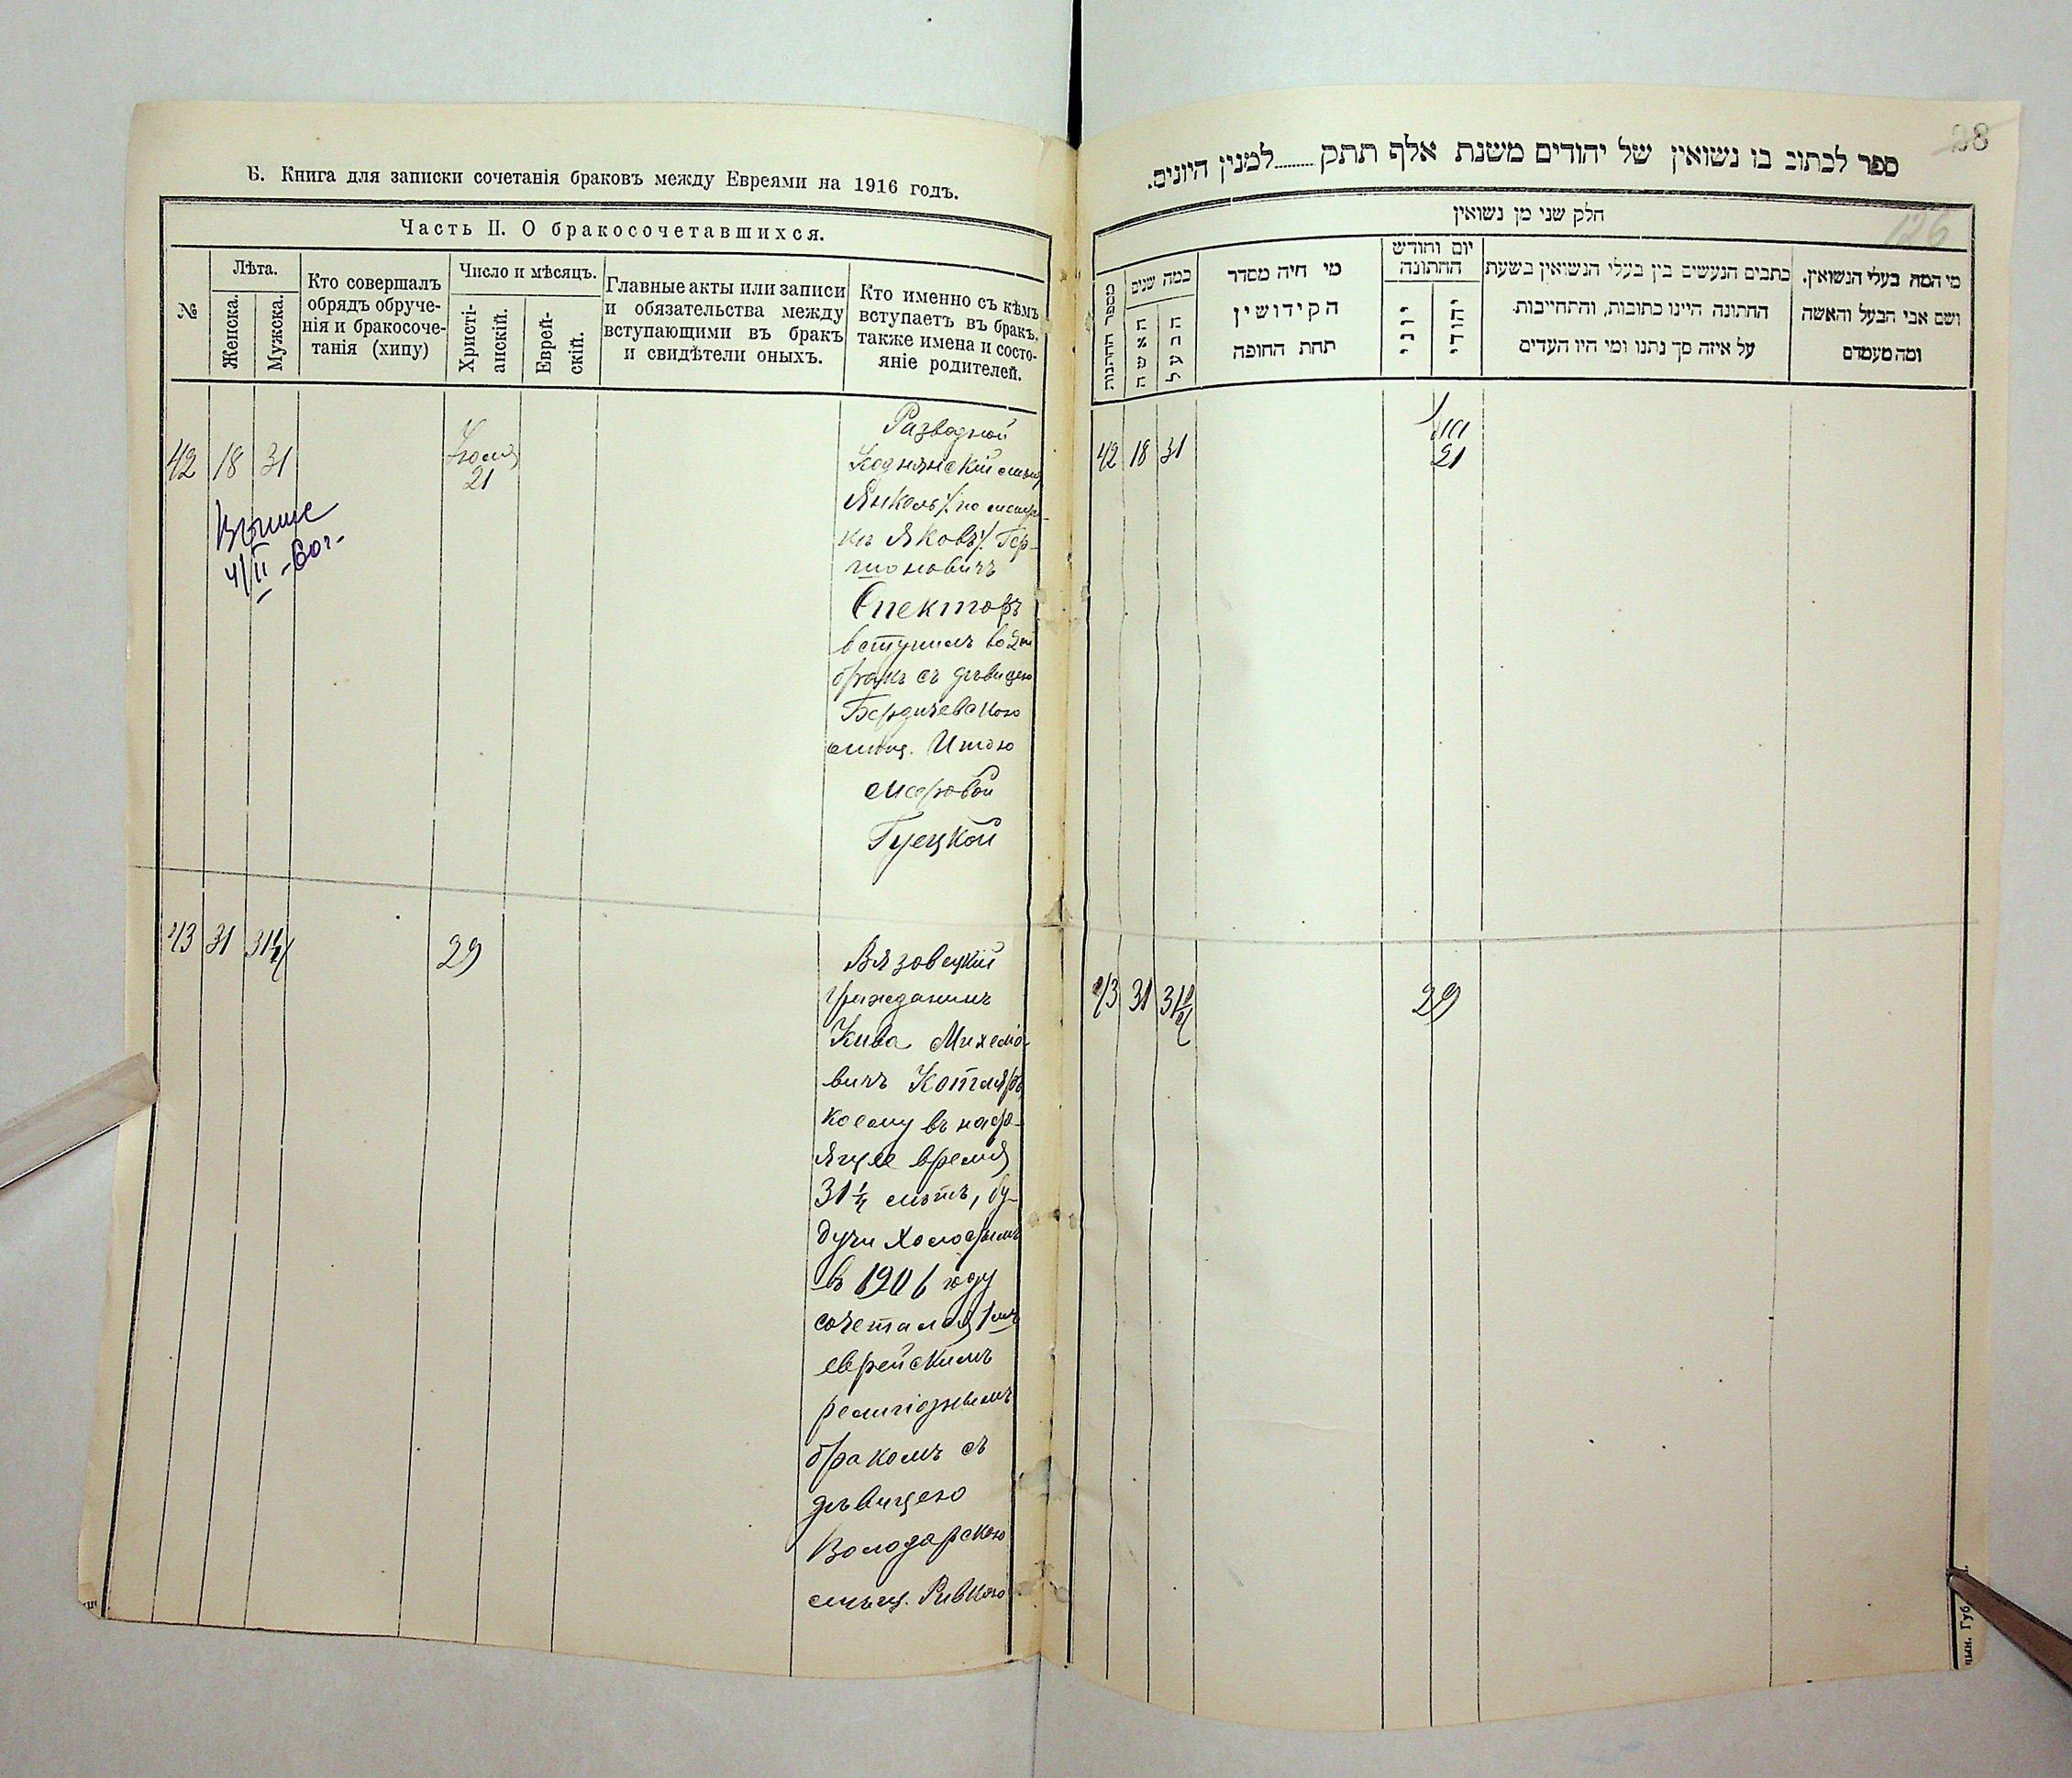 Б. Книга для записки сочетанія браковъ между Евреями на 1916 годъ.
Часть II. О бракосочетавшихся.
№
Лѣта.
Женска.
Мужска.
Кто совершалъ
обрядъ обруче-
нія и бракосоче-
танія (хипу)
Число и мѣсяцъ.
Христі-
анскій.
Еврей-
скій.
Главные акты или записи
и обязательства между
вступающими въ бракъ
и свидѣтели оныхъ.
Кто именно съ кѣмъ
вступаетъ въ бракъ,
также имена и состо-
яніе родителей.
42 18 31
21
4/II - 60г.
Разводной
Коднянскій
Янкель /: по
къ Яковъ /: Гер-
шоновичъ
Спекторъ
вступилъ во 2й
бракъ съ дѣвицею
Бердичевскою
мѣщ. Итою
Меровой
Гуецкой
43 31 31½
29
Вязовецкій
гражданинъ
Кива Михелю-
вичъ Котляръ
коему въ насто-
ящее время
31 ½ лѣтъ, бу-
дучи холостымъ
въ 1906 году
сочетался 1мъ
еврейскимъ
религіознымъ
бракомъ съ
дѣвицею
Володарскою
мѣщ. Ривкою
28
126
ספר לכתוב בו נשואין של יהודים משנת אלף תתק......... למנין היונים.
חלק שני מן נשואין
מספר החתונות
כמה שנים
האשה
הבעל
מי היה מסדר
הקידושין
תחת החופה
יום וחודש
החתונה
יוני
יהודי
כתבים הנעשים בין בעלי הנשואין בשעת
החתונה היינו כתובות, והתחייבות
על איזה סך נתנו ומי היו העדים
מי המה בעלי הנשואין.
ושם אבי הבעל והאשה
ומה מעמדם
42 18 31
21
43 31 31½
29